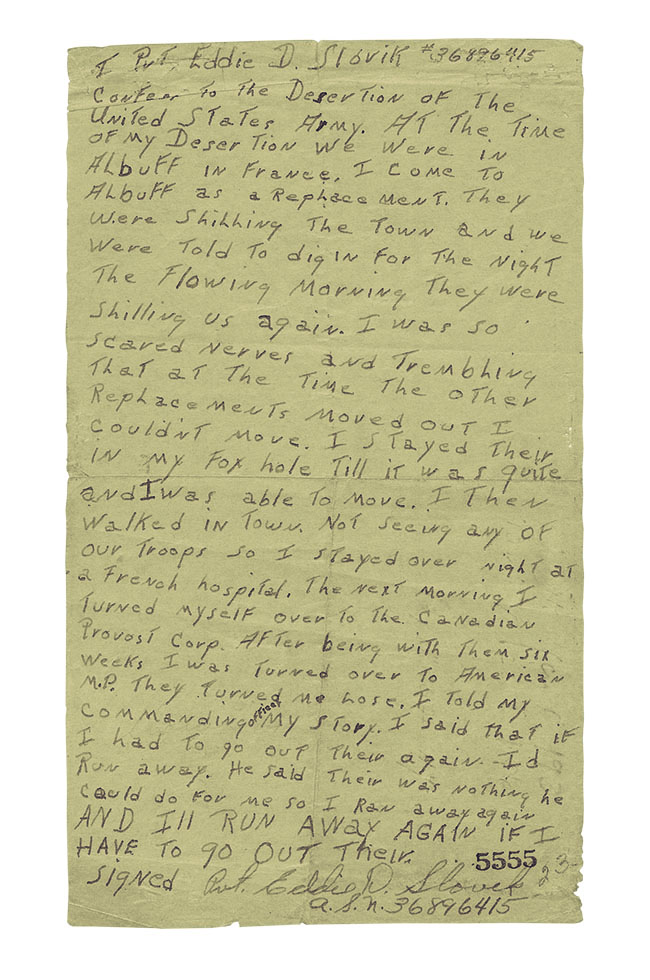 I Pvt. Eddie D. Slovik #36896415
Confess to the Desertion of the
United States Army. At the time
of my Desertion we were in
Albuff in France. I come to
Albuff as a Replacement. They
were shilling the town and we
were told to dig in for the night
The flowing morning they were
shilling us again. I was so
scared nerves and trembling
that at the time the other
Replacements moved out I
couldn't move. I stayed their
in my fox hole till it was quite
and I was able to move. I then
walked in town. Not seeing any of
our troops so I stayed over night at
a French hospital. The next morning I
turned myself over to the Canadian
Provost Corp. After being with them six
weeks I was turned over to American
M.P. They turned me lose. I told my
commanding officer my story. I said that if
I had to go out their again Id
Run away. He said their was nothing he
could do for me so I Ran away again
AND I'll RUN AWAY AGAIN IF I
HAVE TO go OUT Their.
5555
23
signed Pvt. Eddie D. Slovik
A.S.N. 36896415